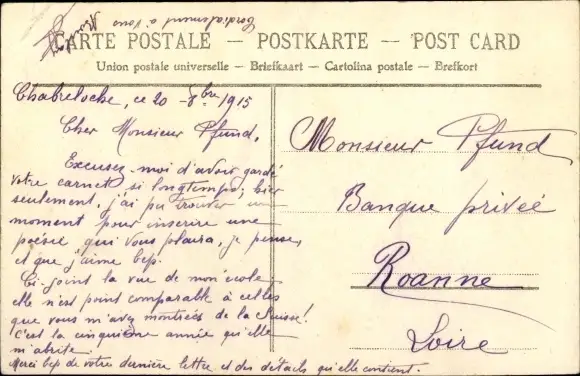 Cordialement à vous
CARTE POSTALE — POSTKARTE — POST CARD
Union postale universelle — Briefkaart — Cartolina postale — Brefkort
Chabreloche, ce 20 - 8bre 1915
Cher Monsieur Pfund,
Excusez-moi d'avoir gardé
votre carnet si longtemps; hier
seulement, j'ai pu trouver un
moment pour inscrire une
poésie qui vous plaira, je pense,
et que j'aime bep.
Ci-joint la vue de mon école:
elle n'est point comparable à celles
que vous m'avez montrées de la Suisse!
C'est la cinquième année qu'elle
m'abrite.
Merci bep de votre dernière lettre et des détails qu'elle contient.
Monsieur Pfund
Banque privée
Roanne
Loire